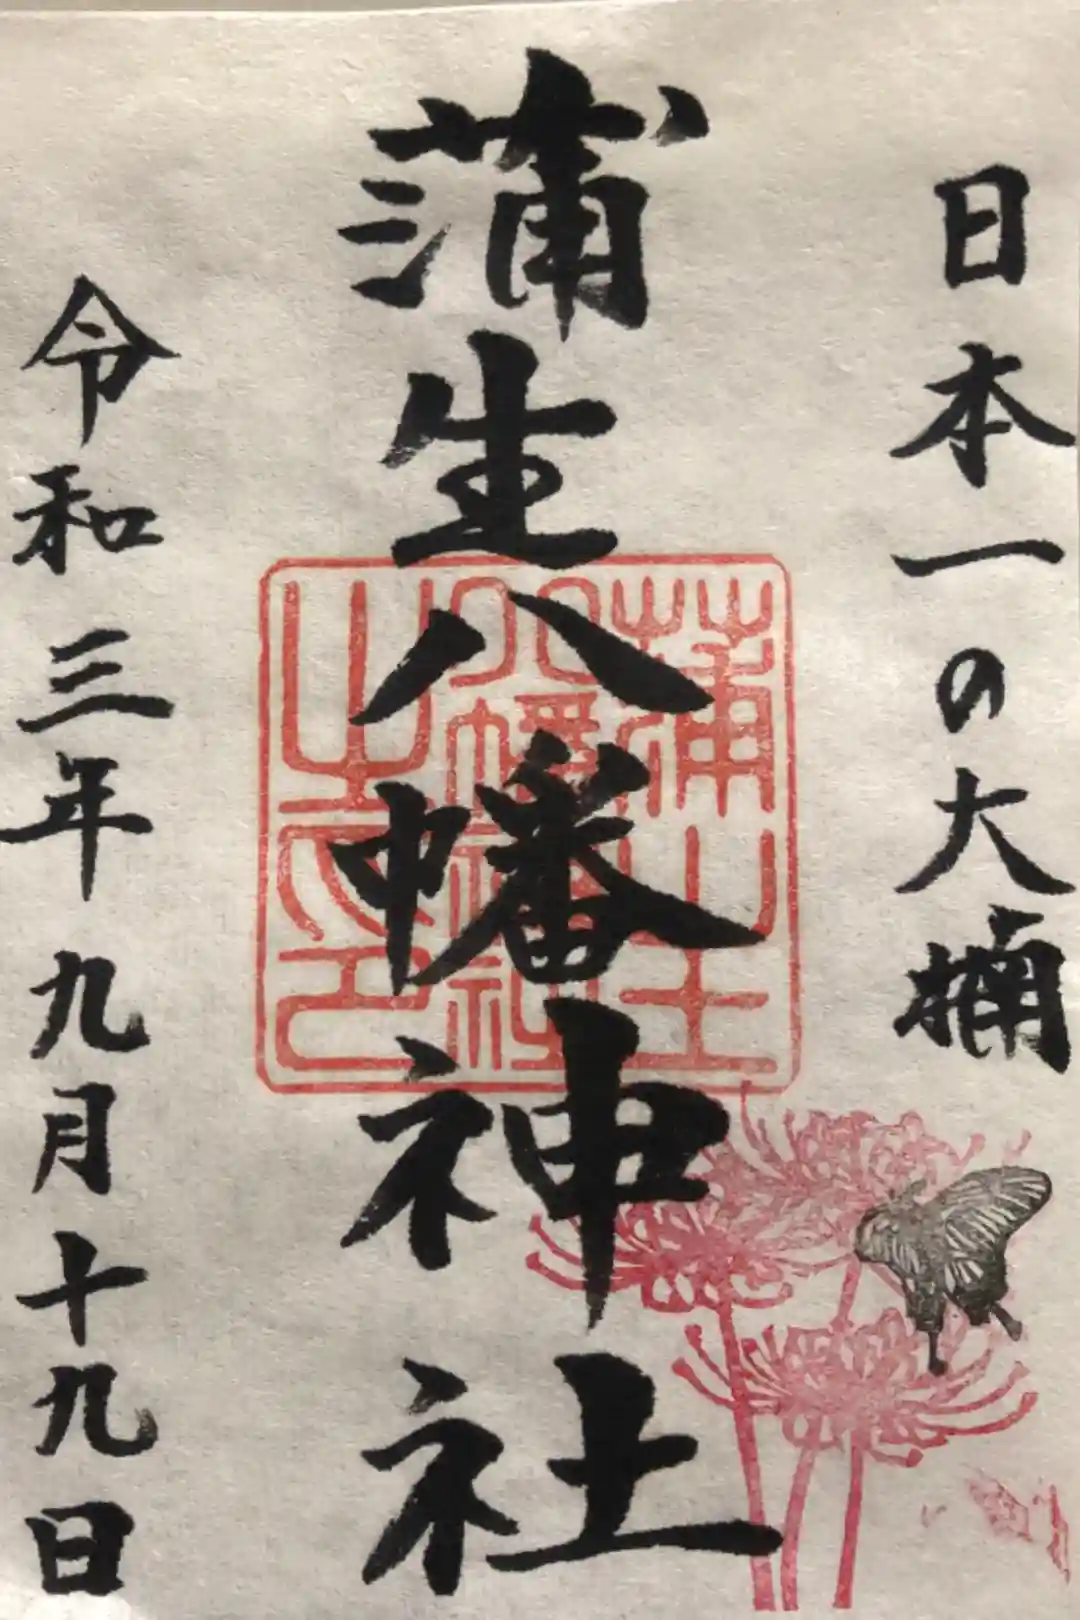 日本一の大楠
蒲生八幡神社
蒲生
八幡神社
之印
令和三年九月十九日